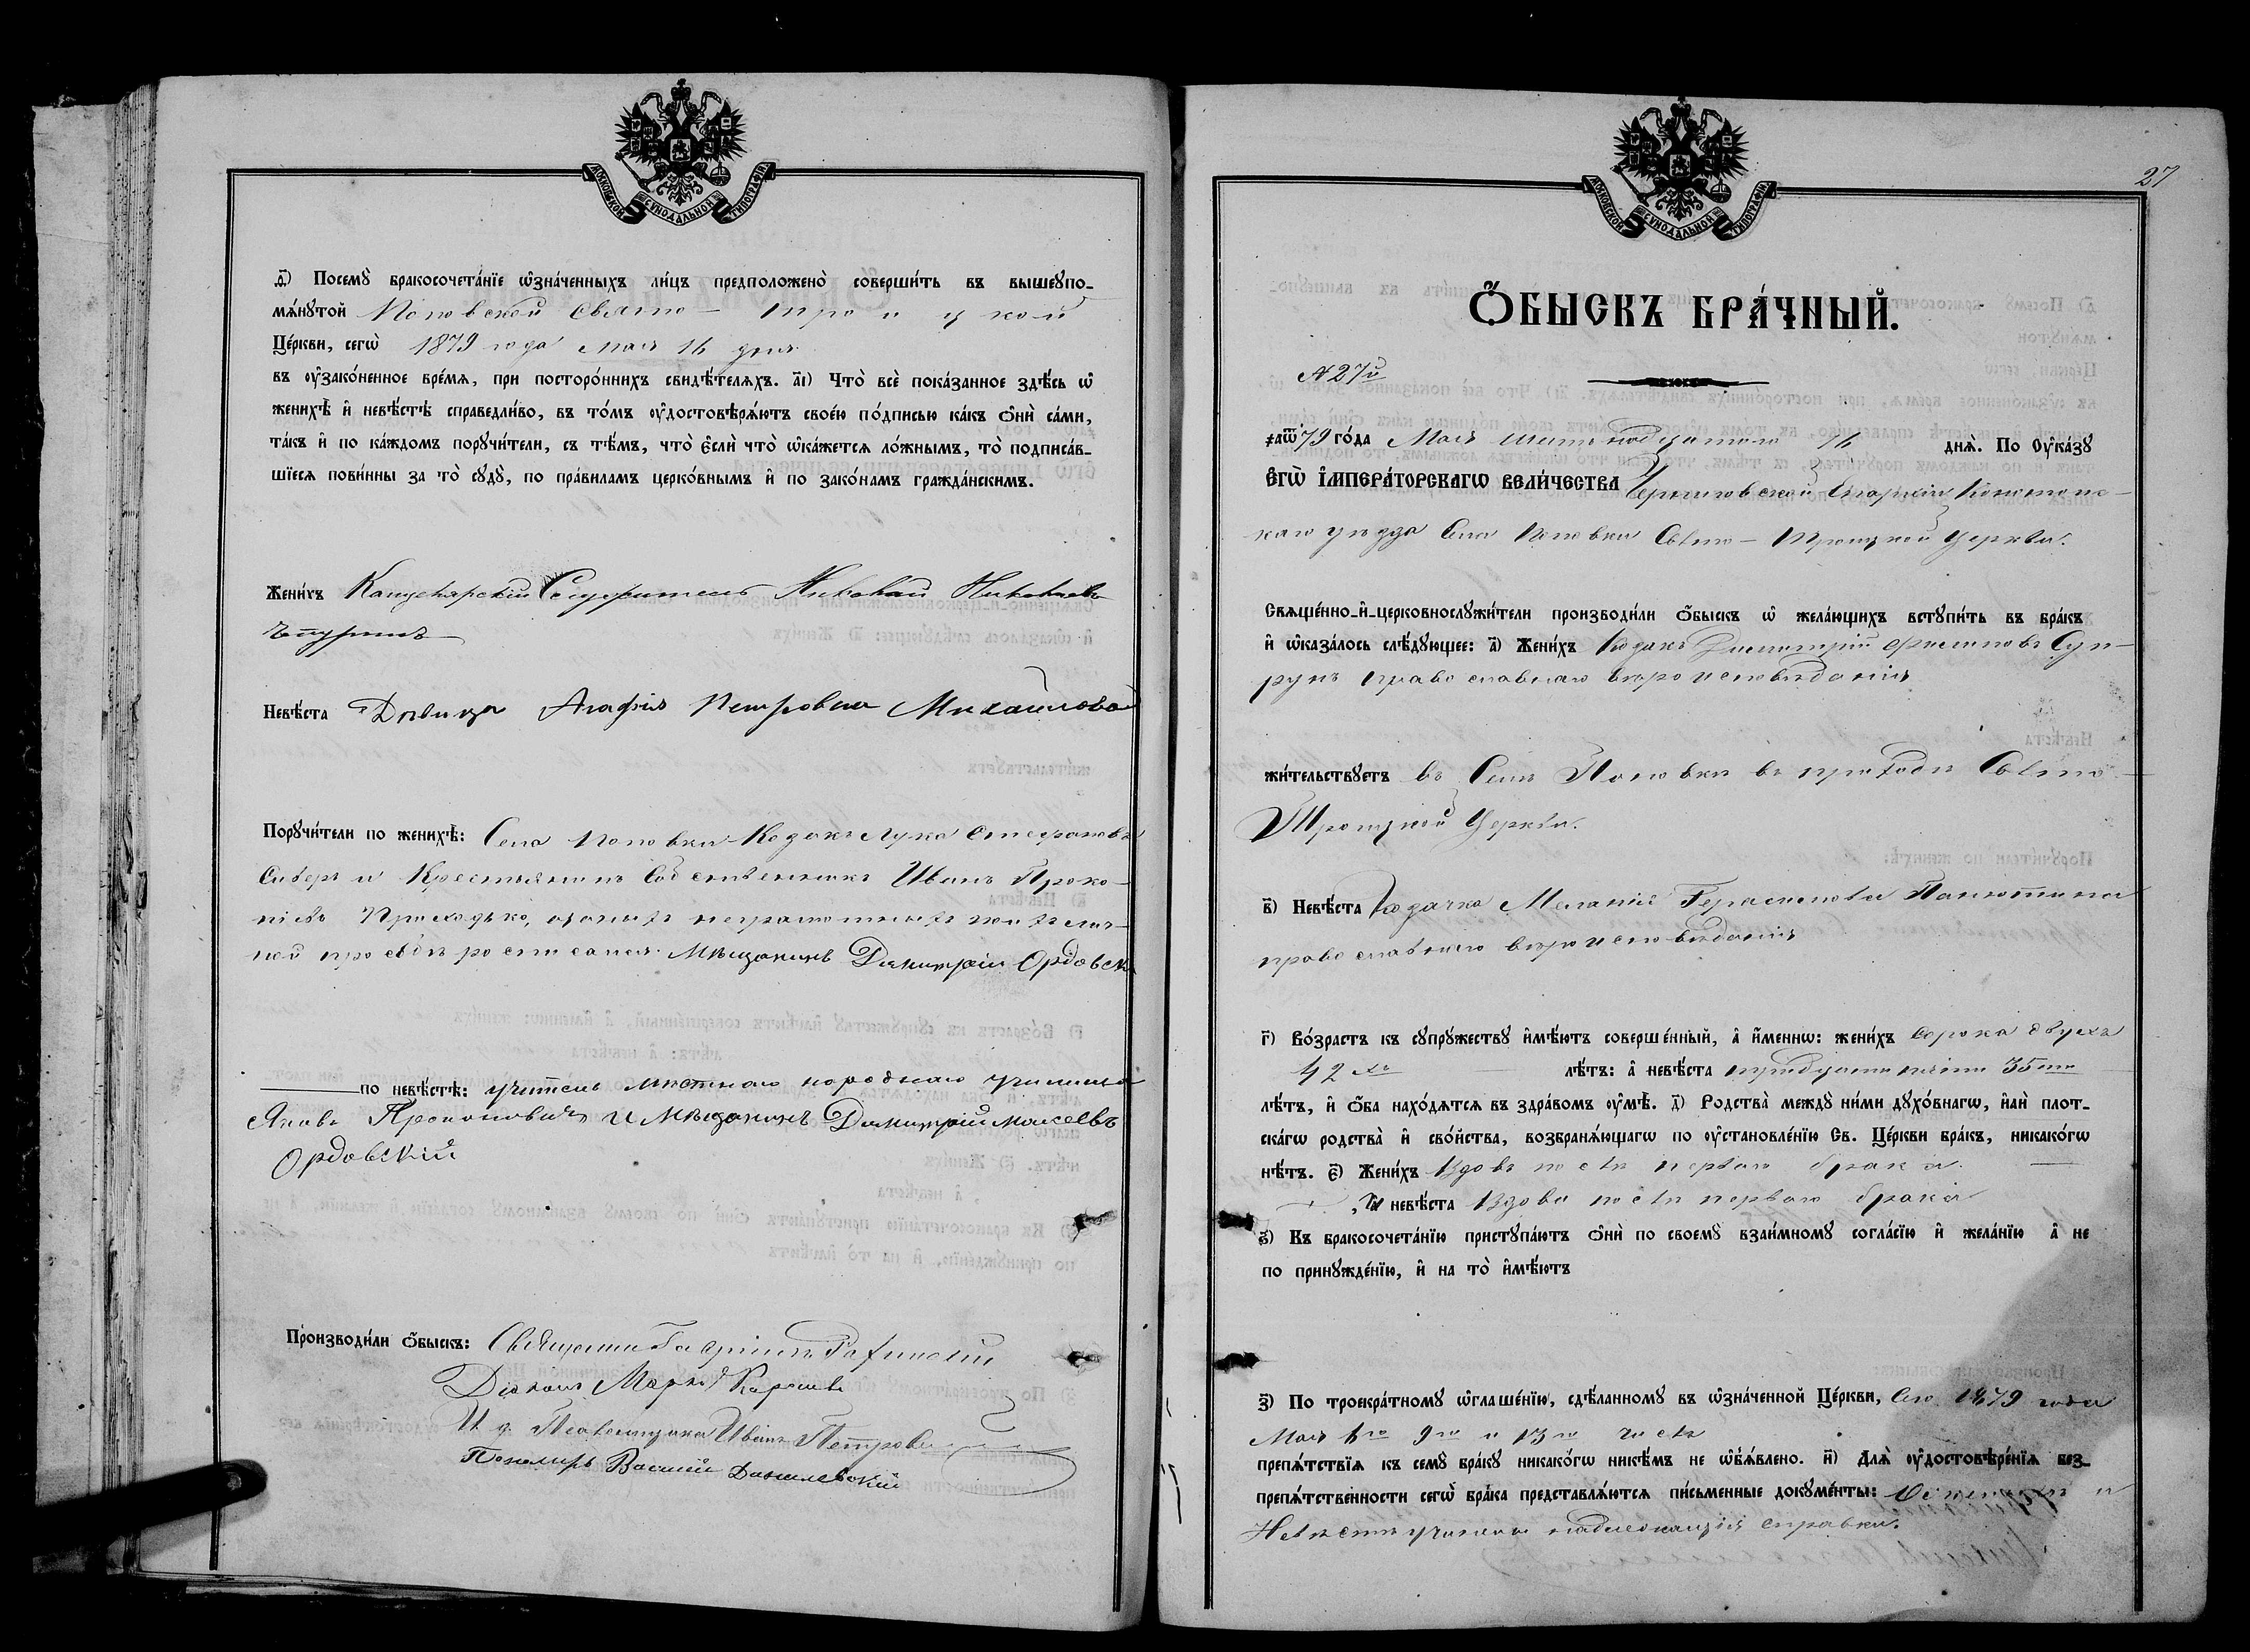 МОСКОВСКОЙ СѴНОДАЛЬНОЙ ТИПОГРАФІИ
і҃) Посемꙋ̀ бракосочета́нїе ѡ҆зна́ченныхъ ли́цъ предположено̀ соверши́ть въ вышеꙋпо-
мѧ́нꙋтой Поповской Свято - Троицкой
Це́ркви, сегѡ̀ 1879 года мая 16 дня
въ ᲂу҆зако́ненное вре́мѧ, при посторо́ннихъ свидѣ́телѧхъ. а҃і) Что̀ всѐ пока́занное здѣ́сь ѡ҆
женихѣ̀ и҆ невѣ́стѣ справедли́во, въ то́мъ ᲂу҆достовѣрѧ́ютъ свое́ю по́дписью ка́къ ѻ҆нѝ са́ми,
та́къ и҆ по ка́ждомъ порꙋчи́тели, съ тѣ́мъ, что̀ є҆слѝ что̀ ѡ҆ка́жетсѧ ло́жнымъ, то̀ подписа́в-
шїесѧ пови́нны за то̀ сꙋдꙋ̀, по пра́виламъ церко́внымъ и҆ по зако́намъ гражда́нскимъ.
Жени́хъ Канцелярскій Служитель Николай Николаевъ
Невѣ́ста Дѣвица Агафія Петровна Михайлова
Порꙋчи́тели по женихѣ̀: Села Поповки Козакъ Лука Стефановъ
Сиверъ и Крестьянинъ Собственникъ Иванъ Проко-
піевъ Приходько, а за нихъ неграмотныхъ по ихъ лич-
ной просьбѣ росписался Мѣщанинъ Димитрій Ордовск
по невѣ́стѣ: учитель мѣстнаго народнаго училища
Яковъ Прокоповичъ и Мѣщанинъ Димитрій Моисеевъ
Ордовскій
Производи́ли ѻ҆́быскъ: Священникъ Гавріилъ
Діаконъ Марко
И. д. Псаломщика Иванъ Петровъ
Пономарь Василій Данилевскій
27
МОСКОВСКОЙ СѴНОДАЛЬНОЙ ТИПОГРАФІИ
Ѻ҆́БЫСКЪ БРА́ЧНЫЙ.
№ 27й
҂аѿ79 го́да Мая шестнадцатаго 16 днѧ̀. По Оу҆ка́зꙋ
Є҆гѡ̀ І҆мпера́торскагѡ вели́чества Черниговской Епархіи Конотопс-
каго уѣзда Села Поповки Свято - Троицкой Церкви.
Свѧще́нно-и҆-церковнослꙋжи́тели производи́ли ѻ҆́быскъ ѡ҆ жела́ющихъ встꙋпи́ть въ бра́къ
и҆ ѡ҆каза́лось слѣ́дꙋющее: а҃) Жени́хъ Козакъ Димитрій Филиповъ Суп-
рунъ православнаго вѣроисповѣданія
жи́тельствꙋетъ въ Селѣ Поповки въ приходѣ Свято -
Троицкой Церкви.
в҃) Невѣ́ста Козачка Меланія Герасимова Панютина
православнаго вѣроисповѣданія
г҃) Во́зрастъ къ сꙋпрꙋ́жествꙋ и҆мѣ́ютъ соверше́нный, а҆ и҆́менно: жени́хъ сорока двухъ
42хъ лѣ́тъ: а҆ невѣ́ста тридцати пяти 35ти
лѣ́тъ, и҆ ѻ҆́ба нахо́дѧтсѧ въ здра́вомъ ᲂу҆мѣ̀. д҃) Родства̀ междꙋ̀ ни́ми дꙋхо́внагѡ, и҆лѝ плот-
ска́гѡ родства̀ и҆ сво́йства, возбранѧ́ющагѡ по ᲂу҆становле́нїю Св. Це́ркви бра́къ, никако́гѡ
нѣ́тъ. є҃) Жени́хъ Вдовъ послѣ перваго брака.
, а҆ невѣ́ста Вдова послѣ перваго брака
ѕ҃) Къ бракосочета́нїю пристꙋпа́ютъ ѻ҆нѝ по своемꙋ̀ взаи́мномꙋ согла́сїю и҆ жела́нїю а҆ не
по принꙋжде́нїю, и҆ на то̀ и҆мѣ́ютъ
з҃) По троекра́тномꙋ ѡ҆глаше́нїю, сдѣ́ланномꙋ въ ѡ҆зна́ченной Це́ркви, сего 1879 года
Мая 9го и 13го числъ
препѧ́тствїѧ къ семꙋ̀ бра́кꙋ никако́гѡ никѣ́мъ не ѡ҆б̾ѧ́влено. и҃) Длѧ̀ ᲂу҆достовѣре́нїѧ без-
препѧ́тственности сегѡ̀ бра́ка представлѧ́ютсѧ пи́сьменные докꙋме́нты: О женихѣ и
Невѣстѣ учинены надлежащія справки.